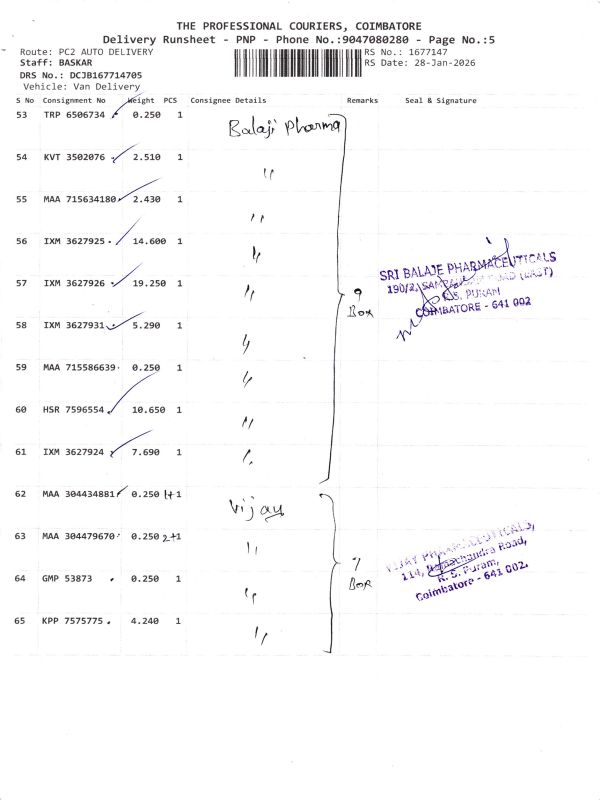 THE PROFESSIONAL COURIERS, COIMBATORE
Delivery Runsheet - PNP - Phone No.:9047080280 - Page No.:5
Route: PC2 AUTO DELIVERY
RS No.: 1677147
Staff: BASKAR
RS Date: 28-Jan-2026
DRS No.: DCJB167714705
Vehicle: Van Delivery
S No Consignment No Weight PCS Consignee Details Remarks Seal & Signature
53 TRP 6506734 0.250 1 Balaji Pharma
54 KVT 3502076 2.510 1 "
55 MAA 715634180 2.430 1 "
56 IXM 3627925 14.600 1 "
57 IXM 3627926 19.250 1 "
9
Box
SRI BALAJE PHARMACEUTICALS
190/2, ROAD (EAST)
R.S. PURAM
COIMBATORE - 641 002
58 IXM 3627931 5.290 1 "
59 MAA 715586639 0.250 1 "
60 HSR 7596554 10.650 1 "
61 IXM 3627924 7.690 1 "
62 MAA 304434881 0.250 1+1 Vijay
63 MAA 304479670 0.250 2+1 "
64 GMP 53873 0.250 1 "
7
Box
VIJAY PHARMACEUTICALS,
114, Ramachandra Road,
R. S. Puram,
Coimbatore - 641 002.
65 KPP 7575775 4.240 1 "